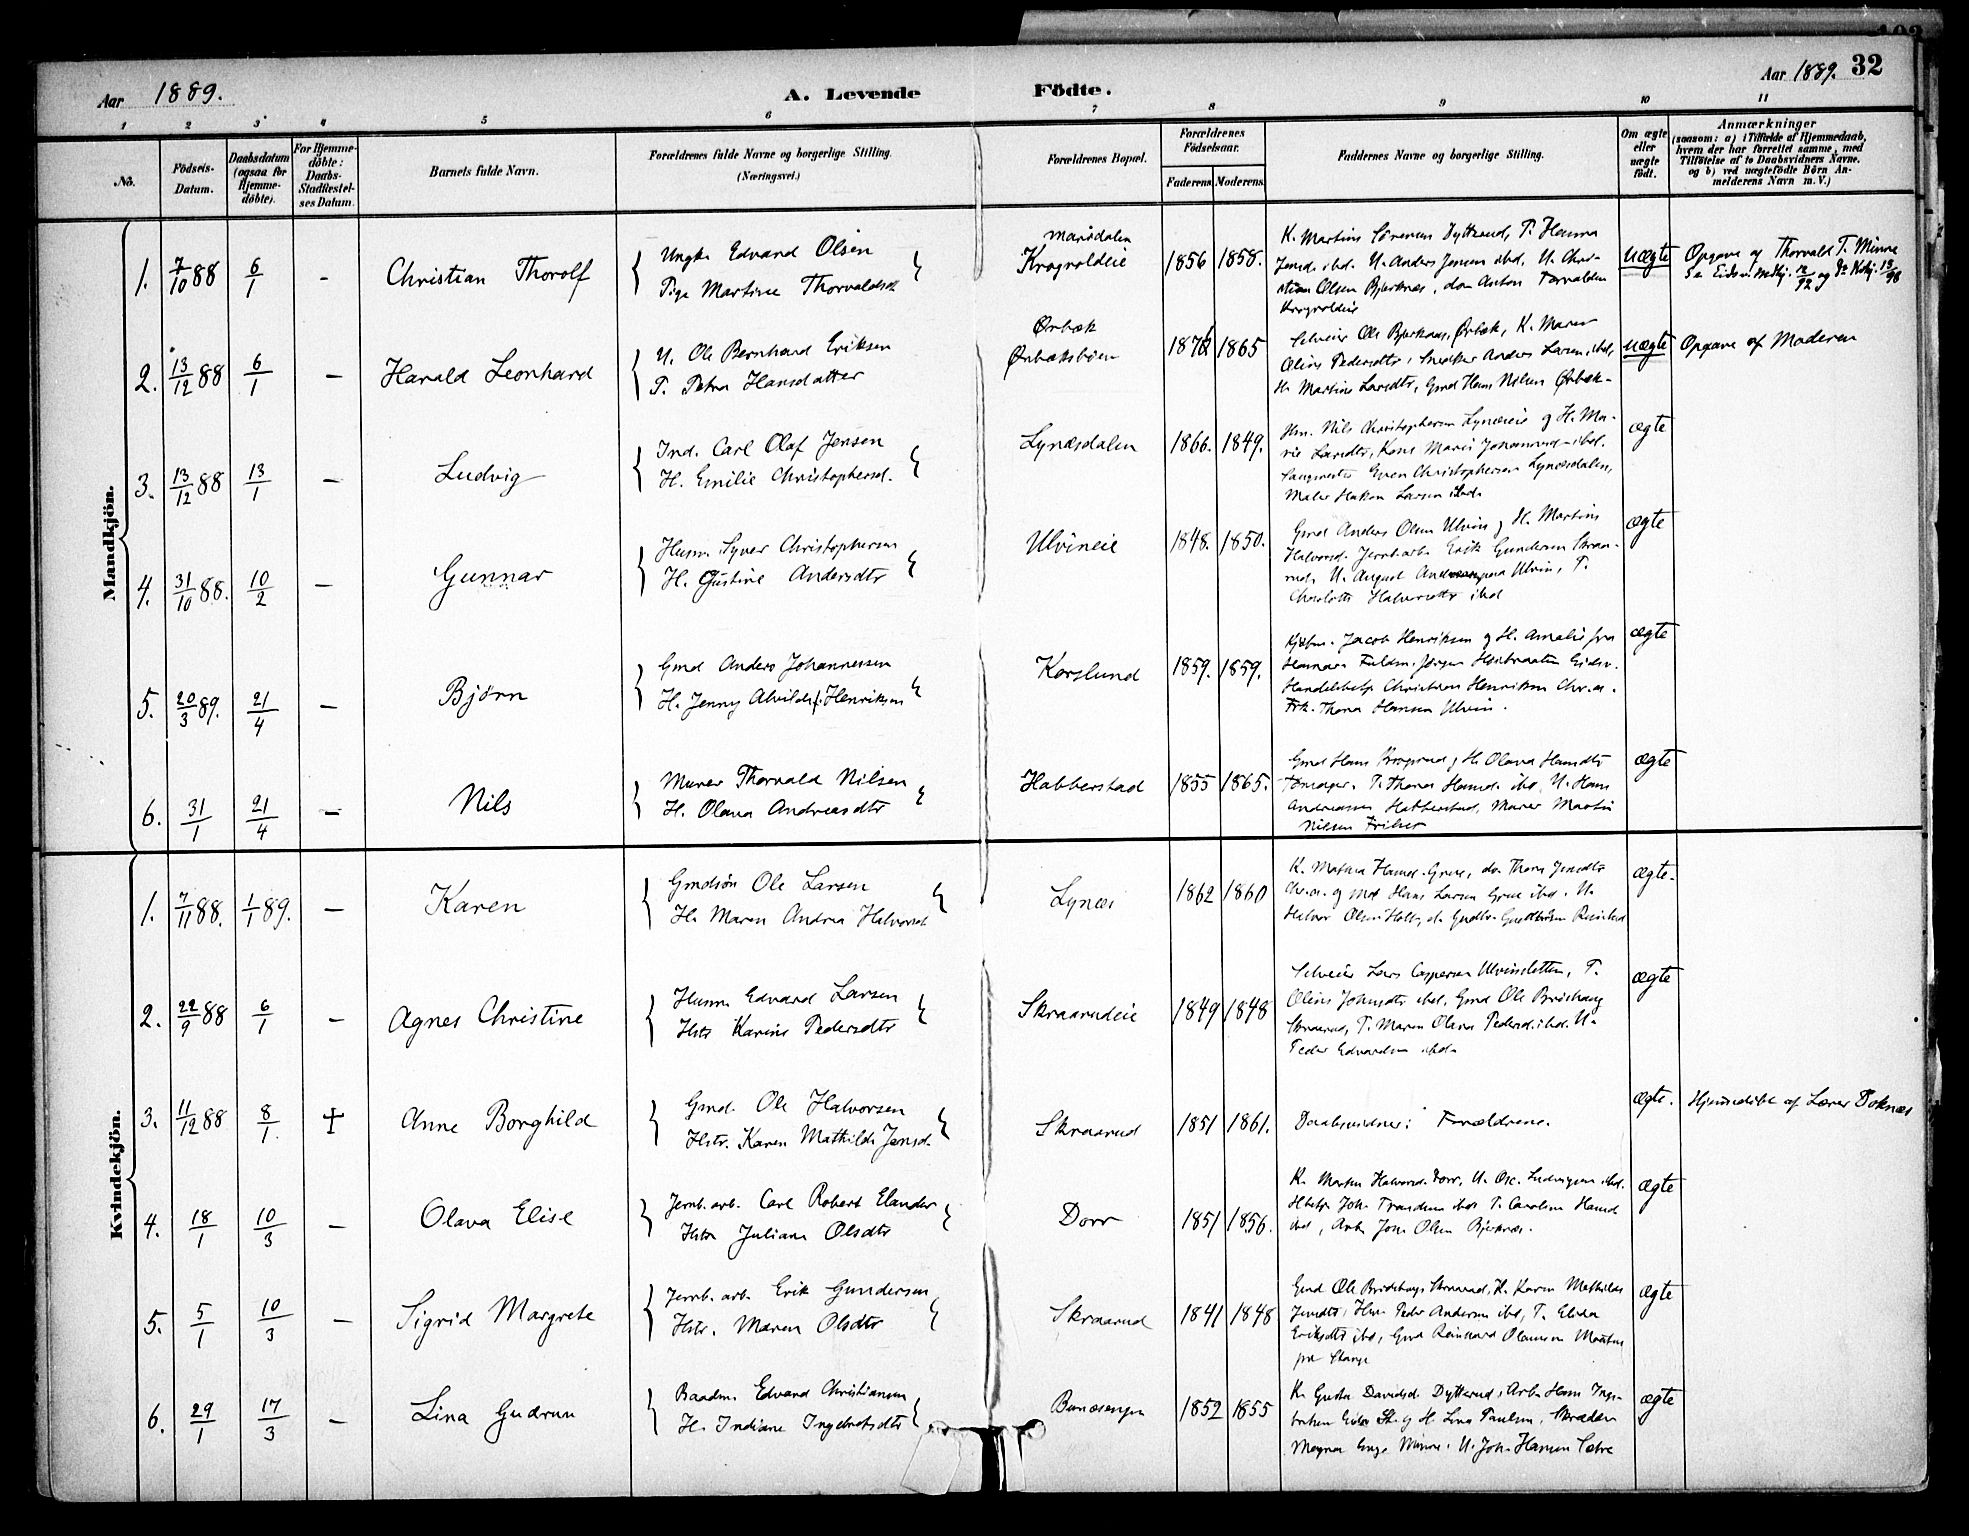 Aar 1889.
A. Levende Födte.
Aar 1889. 32
1 2 3 4 5 6 7 8 9 10 11
No.
Födsels-Datum.
Daabsdatum (ogsaa for Hjemme-döbte).
For Hjemme-döbte: Daabs-Stadfæstel-ses Datum.
Barnets fulde Navn.
Forældrenes fulde Navne og borgerlige Stilling.
(Næringsvei.)
Forældrenes Bopæl.
Forældrenes Födselsaar.
Faderens. Moderens.
Faddernes Navne og borgerlige Stilling.
Om ægte eller uægte födt.
Anmærkninger
(saasom: a) i Tilfælde af Hjemmedaab,
hvem der har forrettet samme, med
Tilföielse af to Daabsvidners Navne.
og b) ved uægtefödte Börn An-
melderens Navn m. V.)
Mandkjön.
1. 7/10 88 6/1 - Christian Thorolf
Ungk. Edvard Olsen
Pige Martine Thorvaldsdt
Mariidalen
Krogvoldeie 1856 1858.
K. Martine Sörensen Dytterud, P. Hanna
Jensd. ibd. U. Anders Jensen ibd. U. Chri-
stian Olsen Bjerknes, do Anton Torvaldsen
Krogvoldeie
uægte
Opgave af Thorvald T. Minne
2. 13/12 88 6/1 - Harald Leonhard
U. Ole Bernhard Eriksen
P. Petra Hansdatter
Ørbæk
Ørbæksböen 1865
Selveier Ole Bjerknes, Ørbæk, K. Maren
Oline Pedersdtr, Snedker Anders Larsen, ibd,
H. Martine Larsdtr, Gmd Hans Nilsen Ørbæk-
uægte
Opgave af Moderen
3. 13/12 88 13/1 - Ludvig
Ind. Carl Olaf Jensen
H. Emilie Christophersd.
Lynæsdalen 1866. 1849.
Hm. Nils Christophersen Lynæseie og H. Ma-
rie Larsdtr, Kone Marie Johannesd. ibd.
Saugmester Even Christophersen Lynæsdalen,
Maler Hakon Larsen ibd.
ægte
4. 31/10 88. 10/2 - Gunnar
Husm. Syver Christophersen
H. Gustine Andersdtr
Ulvineie 1848. 1850.
Gmd Anders Olsen Ulvin og H. Martine
Halvorsd. Jernb.arb. Erik Gundersen Skraa-
rud, U. August Ulvin, P.
Charlotte Halvorsdtr ibd
ægte
5. 20/3 89. 21/4 - Björn
Gmd Anders Johannessen
H. Jenny Alvilde f. Henriksen
Korslund 1859. 1859.
Kjöbm. Jacob Henriksen og H. Amalie fra
Hamar, Fuldm. Jörgen Eidsv.
Handelsbetj. Christian Henriksen Chr.a.
Frk. Thora Hansen Ulvin.
ægte
6. 31/1 21/4 - Nils
Murer Thorvald Nilsen
H. Olava Andreasdtr
Habberstad 1855 1865.
Gmd Hans og H. Olava Hansdtr
P. Thora Hansd. ibd, U. Hans
Andreassen Habberstad, Murer Martin
Nilsen
ægte
Kvindekjön.
1. 7/11 88. 1/1 89. - Karen
Gmdsön Ole Larsen
H. Maren Andrea Halvorsdt
Lynæs 1862 1860
K. Mathea Hansd. Grue, do Thora Jensdtr
Chr.a. og Hans Larsen Grue ibd. U.
Halvor Olsen Holt,
ægte.
2. 22/9 88 6/1 - Agnes Christine
Husm. Edvard Larsen
Hstr Karine Pedersdtr
Skraarudeie 1849 1848
Selveier Lars Caspersen Ulvinsletten, P.
Oline Johnsdtr ibd, Gmd Ole Brödshaug
Skraarud, P. Maren Olava Pedersd. ibd. U.
Peder Edvardsen ibd.
ægte
3. 11/12 88 8/1. † Anne Borghild
Gmd. Ole Halvorsen
Hstr. Karen Mathilde Jensd.
Skraarud 1851 1861.
Daabsvidner: Forældrene.
ægte.
Hjemmedöbt af Lærer Doknæs
4. 18/1 10/3 - Olava Elise
Jernb.arb. Carl Robert Elander
Hstr Juliane Olsdtr
Dorr 1851 1856.
K. Marthe Halvorsd. Dorr, U. Osc. Ludvigsen ibd.
Joh. Trandem ibd P. Caroline Hansd
ibd, Arb. Joh. Olsen Bjerknæs.
ægte
5. 5/1 10/3 - Sigrid Margrete
Jernb.arb. Erik Gundersen
Hstr. Maren Olsdtr
Skraarud 1841 1848
Gmd Ole Brödshaug Skraarud, K. Karen Mathilde
Jensdtr, Hm. Peder Andersen ibd, P. Elida
Eriksdtr ibd, Gmd Reinhard Olaussen
fra Stange
ægte
6. 29/1 17/3 - Lina Gudrun
Baadm. Edvard Christiansen
H. Indiane Ingebretsdtr
Bunæsengen 1852 1855
K. Gusta Davidsd. Dytterud, Arb. Hans Inge-
bretsen Eidsv. St. og H. Lina Paulsen, Skræder
Magnus Minne, U. Joh. Hansen Sætre
ægte